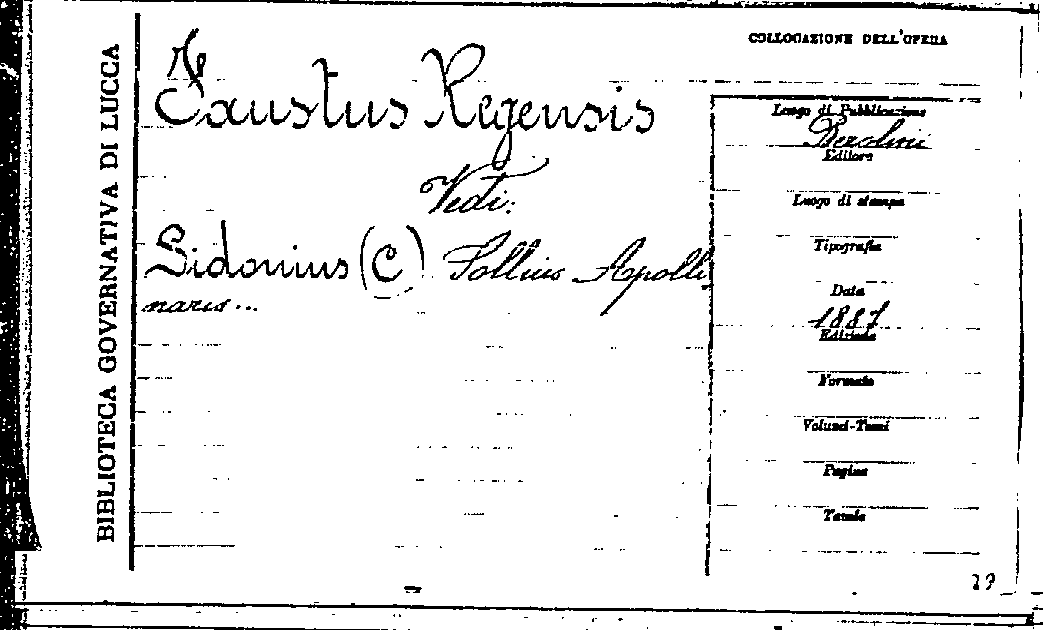 BIBLIOTECA GOVERNATIVA DI LUCCA
COLLOCAZIONE DELL'OPERA
Faustus Regensis
Vedi:
Sidonius (C) Sollius Apolli
naris...
Luogo di Pubblicazione
Berolini
Editore
Luogo di stampa
Tipografia
Data
1887
Edizione
Formato
Volumi-Tomi
Pagine
Tavole